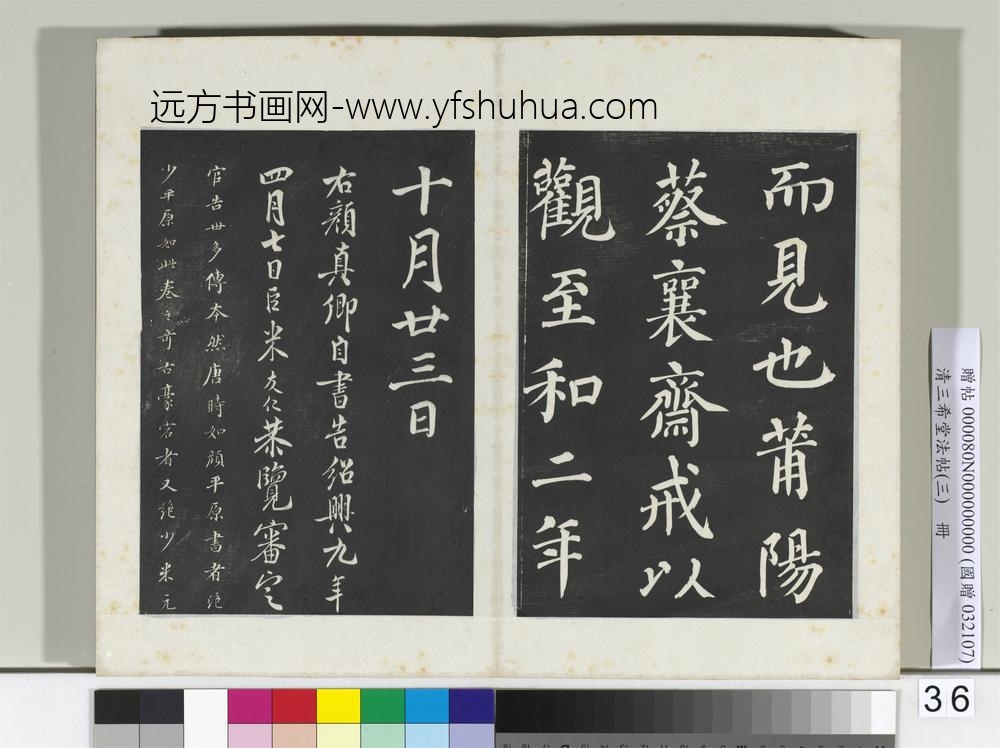 远方书画网-www.yfshuhua.com
而見也莆陽
蔡襄齋戒以
觀至和二年
十月廿三日
右顏真卿自書告紹興九年
四月七日臣米友仁恭覽審定
官告世多傳本然唐時如顏平原書者絕
少平原如此卷之奇古豪宕者又絕少米元
贈帖 000080N000000000 (國贈 032107)
清三希堂法帖(三) 冊
36